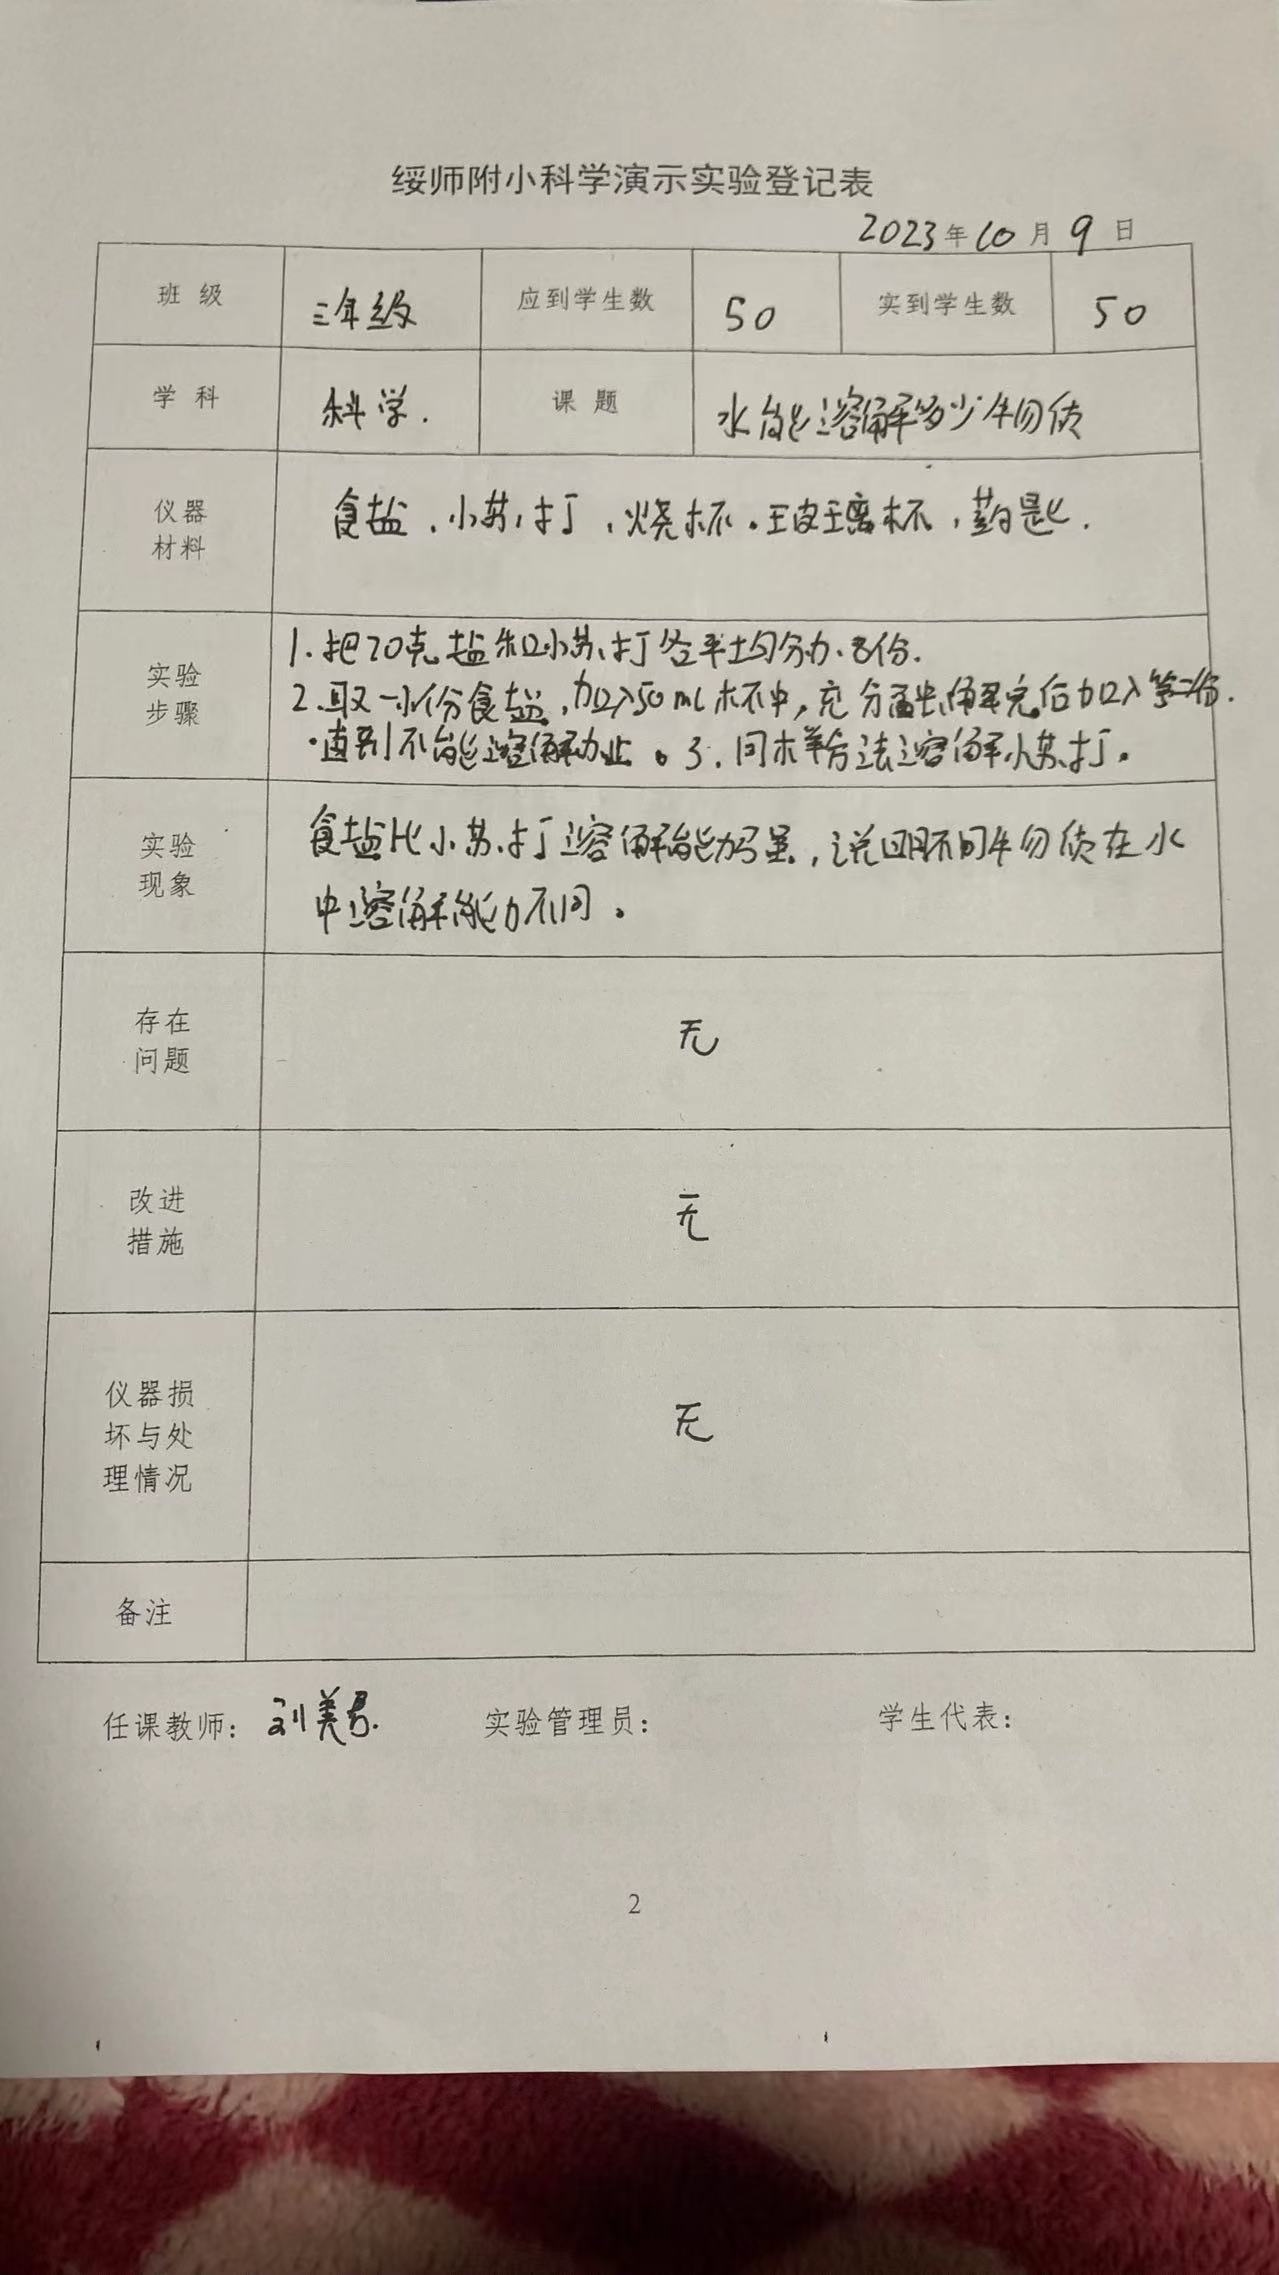 绥师附小科学演示实验登记表
2023年10月9日
班级 三年级 应到学生数 50 实到学生数 50
学科 科学. 课题 水能溶解多少物质
仪器
材料
食盐、小苏打、烧杯。玻璃杯,药匙.
实验
步骤
1.把20克盐和小苏打各平均分为8份.
2.取一小份食盐,加入50ml杯中,充分溶解完后加入第二份.
·直到不能溶解为止。3.同样方法溶解小苏打。
实验
现象
食盐比小苏打溶解能力强,说明不同物质在水
中溶解能力不同。
存在
问题
无
改进
措施
无
仪器损
坏与处
理情况
无
备注
任课教师: 刘美君. 实验管理员: 学生代表:
2